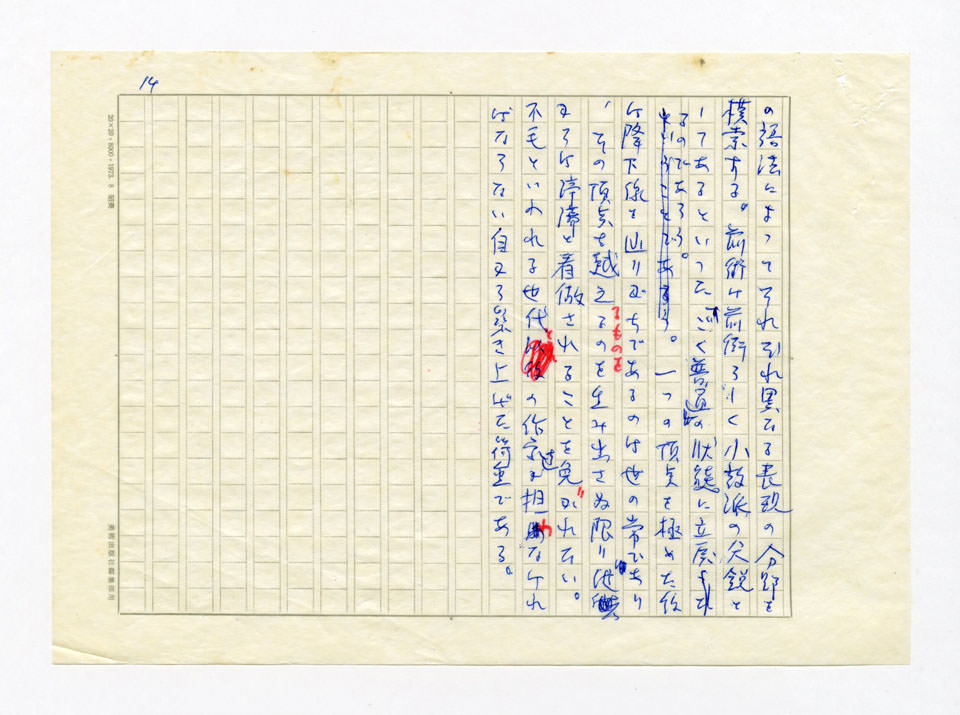 14
の語法によってそれぞれ異なる表現の分野を
模索する。前術は前衛らしく小数派の尖鋭と
してあるといったごく普通の状態に立戻され
るのであろう。
ということであろう。一つの頂点を極めた後
は降下線を辿りがちであるのは世の常であり
、その頂点を越えるものを生み出さぬ限り
るものよ
まらは停滞と看做されることを免がれない。
不毛といわれる世代との作家達が担わなけれ
ばならない自から築き上げた荷重である。
20×20・8000・1973. 8
美術出版社編集部用